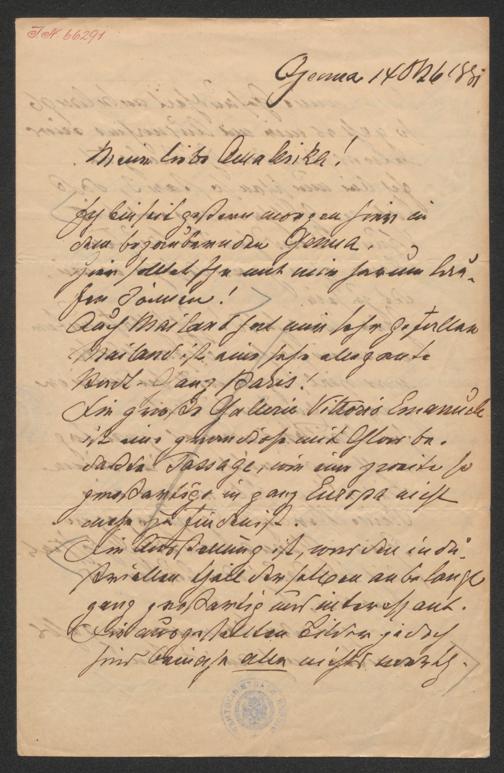 J.N. 66291
Genua 14 Okt 6 1881
Meine liebe Amalerika!
Ich bin seit gestern morgen hier in
dem bezaubernden Genua.
Hier solltet Ihr mit mir herum lau-
fen können!
Auch Mailand hat mir sehr gefallen
Mailand ist eine sehr elegante
Stadt – ganz Paris!
Die große Gallerie Vittorio Emanuele
ist eine grandiose mit Glas be-
deckte Passage, wie eine zweite so
großartige in ganz Europa nicht
mehr zu finden ist.
Die Ausstellung ist, was den indu-
striellen Theil derselben anbelangt
ganz großartig und interessant.
Die ausgestellten Bilder jedoch
sind beinahe alle nichts werth.